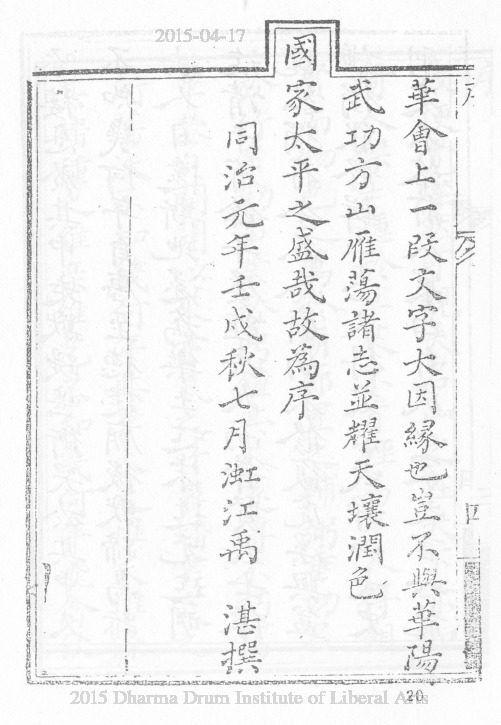 2015-04-17
華會上一段文字大因緣也豈不與華陽
武功方山雁蕩諸志並耀天壤潤色
國家太平之盛哉故為序
同治元年壬戌秋七月瀜江禹 湛撰
20
2015 Dharma Drum Institute of Liberal Arts